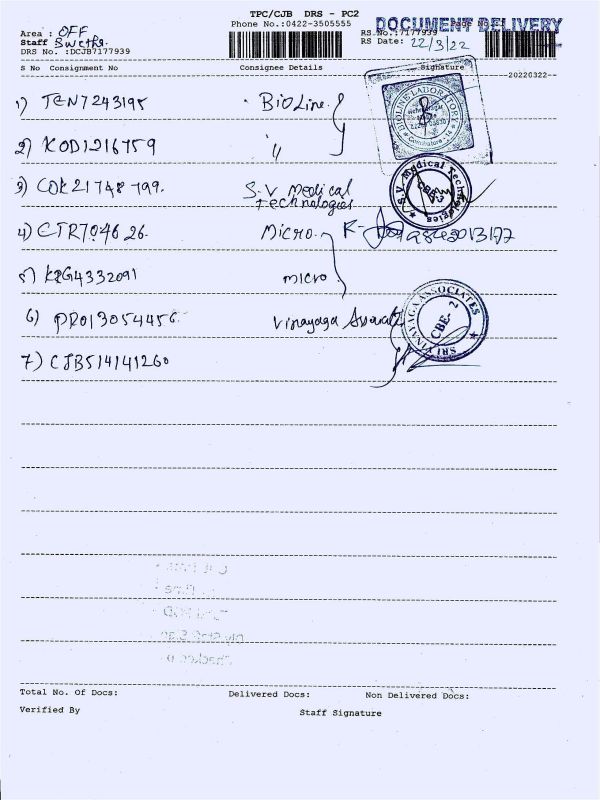 TPC/CJB DRS - PC2
Phone No.:0422-3505555
DOCUMENT DELIVERY
Area : OFF
Staff Swetha.
DRS No. :DCJB7177939
RS No.:7177939
RS Date: 22/3/22
S No Consignment No Consignee Details Signature
20220322
1) TEN7243195 BioLine
BIOLINE LABORATORY
Coimbatore - 14
2) KOD1216759 "
3) COK21748799. S.V Medical Technologies
S.V. Medical Technologies
CBE-3
4) CTR704626. Micro.
5) KRG4332091 micro
6) PRO13054456 Vinayaga
SRI VINAYAGA ASSOCIATES
CBE-2
7) CJB514141260
Total No. Of Docs: Delivered Docs: Non Delivered Docs:
Verified By Staff Signature